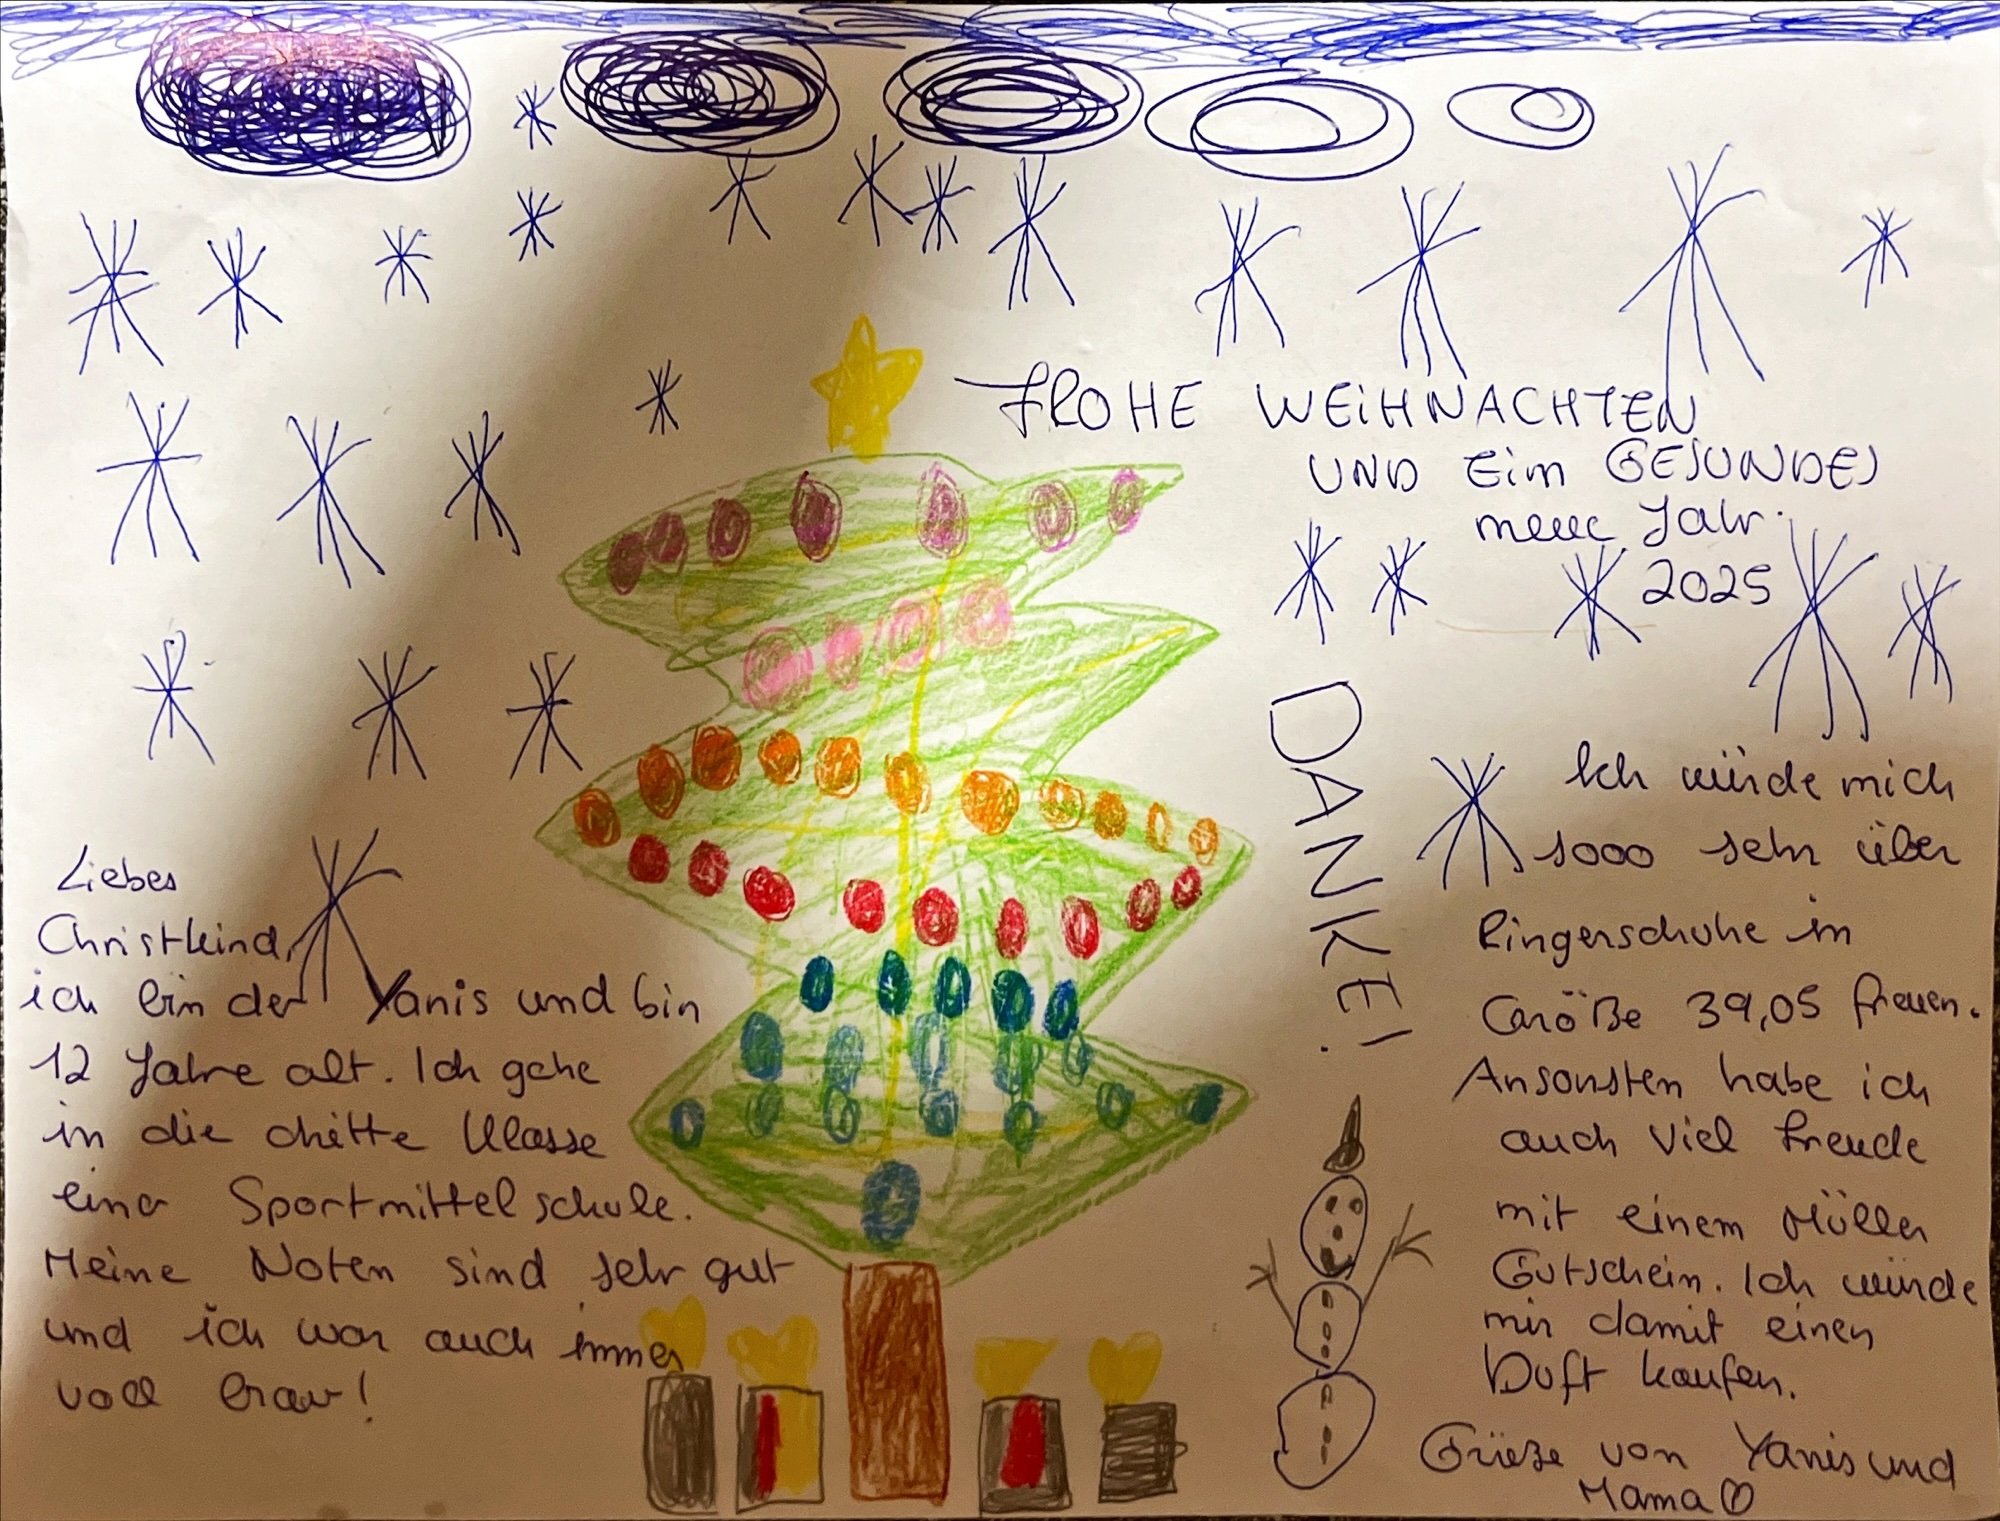 FROHE WEIHNACHTEN
UND Ein GESUNDES
neue Jahr.
2025
Liebes
Christkind,
ich bin der Yanis und bin
12 Jahre alt. Ich gehe
in die dritte Klasse
einer Sportmittelschule.
Meine Noten sind sehr gut
und ich war auch immer
voll brav!
DANKE!
Ich würde mich
sooo sehr über
Ringerschuhe in
Größe 39,05 freuen.
Ansonsten habe ich
auch viel freude
mit einem Müller
Gutschein. Ich würde
mir damit einen
Duft kaufen.
Grüße von Yanis und
Mama